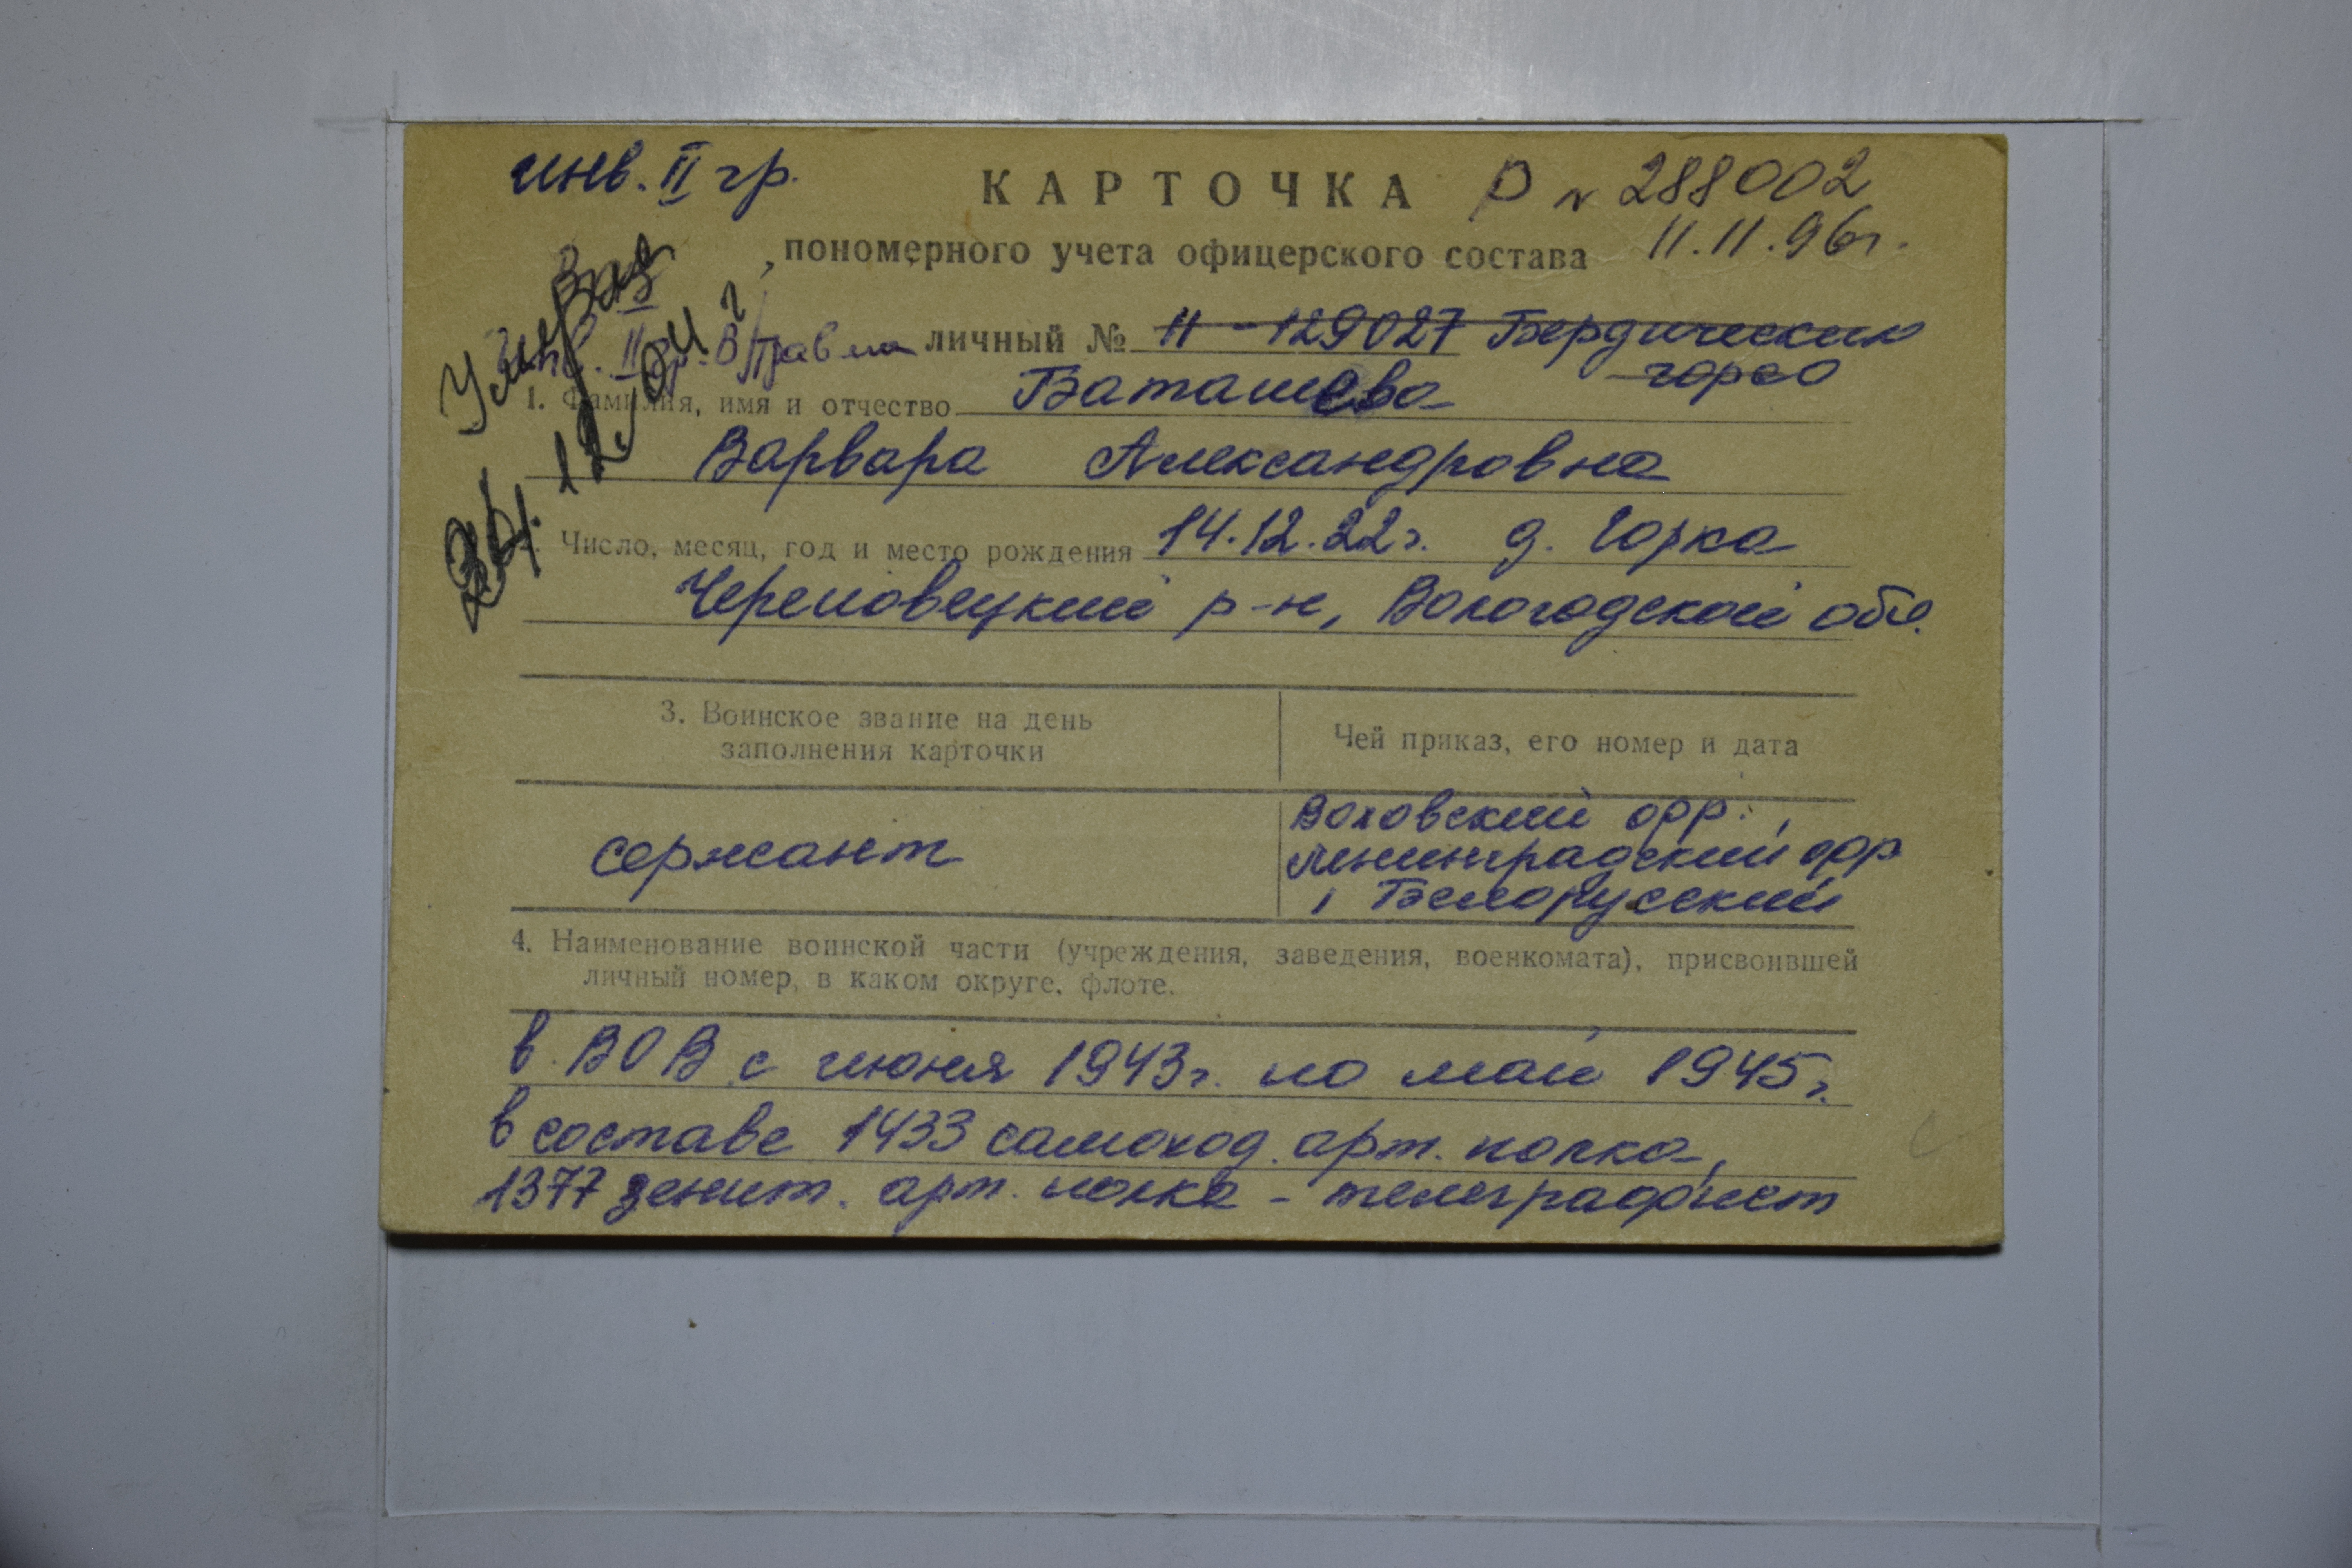 инв. II гр.
КАРТОЧКА Р № 288002
пономерного учета офицерского состава 11.11.96г.
Умерла 24.12.
инв. II гр. травма
личный № 11 - 129027 Бердическим
1. Фамилия, имя и отчество Баташева
Варвара Александровна
Число, месяц, год и место рождения 14.12.22г. д. Горка
Череповецкий р-н, Вологодской обл.
3. Воинское звание на день
заполнения карточки
Чей приказ, его номер и дата
сержант
Волховский фр.,
Ленинградский фр
, Белорусский
4. Наименование воинской части (учреждения, заведения, военкомата), присвоившей
личный номер, в каком округе, флоте.
в ВОВ с июня 1943г. по май 1945г.
в составе 1433 самоход. арт. полка,
1377 зенит. арт. полка - телеграфист